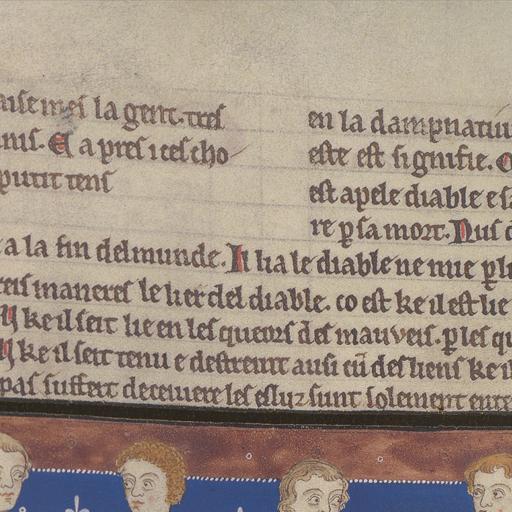 aisem es la gent. tres
nis. Et apres ices cho
putit tens
en la dampnatiu
este est signifie.
est apele diable e sa
re p sa mort. Nus d
a la fin del munde. Il lia le diable ne mie pl
reis maneres le lier del diable. co est ke il est lie
ke il seit lie en les queors des mauveis. p les qu
ke il seit tenu e destreint ausi cū des liens ke il
pas suffert deceivere les esluz sunt solement entre